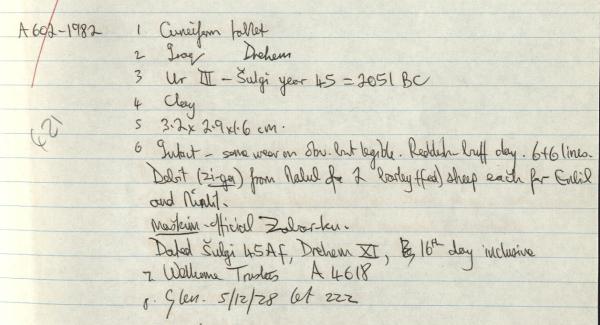 A602-1982 1 Cuneiform tablet
2 Iraq Drehem
3 Ur III - Šulgi year 45 = 2051 BC
4 Clay
5 3.2 x 2.9 x 1.6 cm.
6 Intact - some wear on obv. but legible. Reddish-buff clay. 6+6 lines.
Debit (zi-ga) from Nalul of 2 barley (fed) sheep each for Enlil
and Ninlil.
maškim-official Zabar-ku.
Dated Šulgi 45Af, Drehem XI, 16th day inclusive
7 Wellcome Trustees A 4618
8. Glen. 5/12/28 lot 222
621